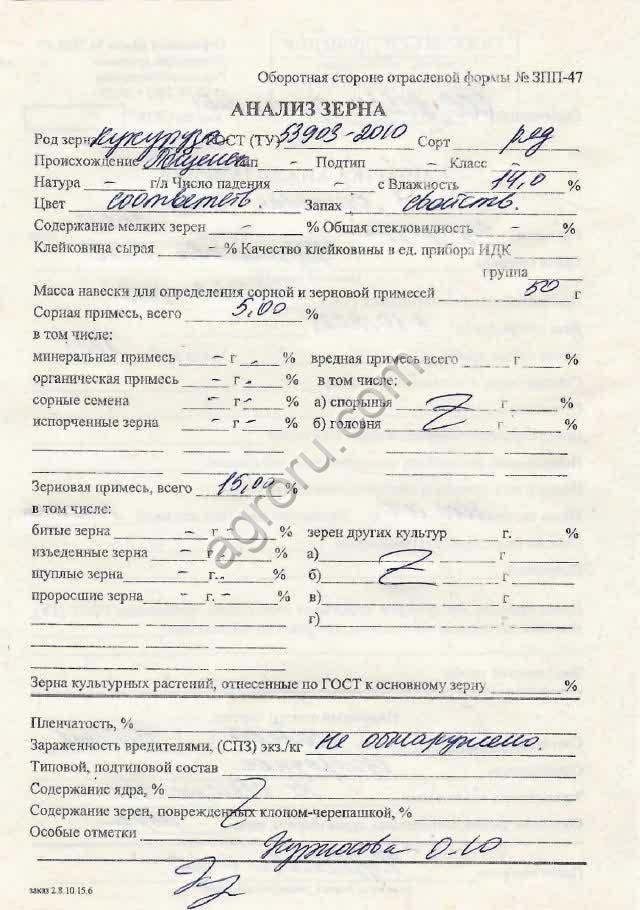 Оборотная стороне отраслевой формы № ЗПП-47
АНАЛИЗ ЗЕРНА
Род зерна кукуруза ГОСТ (ТУ) 53903-2010 Сорт ряд
Происхождение Тип - Подтип - Класс -
Натура - г/л Число падения - с Влажность 14,0 %
Цвет соответств. Запах свойств.
Содержание мелких зерен - % Общая стекловидность -
Клейковина сырая - % Качество клейковины в ед. прибора ИДК
группа
Масса навески для определения сорной и зерновой примесей 50 г
Сорная примесь, всего 5,00 %
в том числе:
минеральная примесь - г - % вредная примесь всего г %
органическая примесь - г - % в том числе:
сорные семена - г - % а) спорынья г %
испорченные зерна - г - % б) головня г %
Зерновая примесь, всего 15,00 %
в том числе:
битые зерна - г - % зерен других культур г. %
изъеденные зерна - г - % а) г
щуплые зерна - г. - % б) г
проросшие зерна - г. - % в) г
г) г
Зерна культурных растений, отнесенные по ГОСТ к основному зерну %
Пленчатость, %
Зараженность вредителями, (СПЗ) экз./кг не обнаружено.
Типовой, подтиповой состав
Содержание ядра, %
Содержание зерен, поврежденных клопом-черепашкой, %
Особые отметки
заказ 2.8.10.15.6
agroru.com